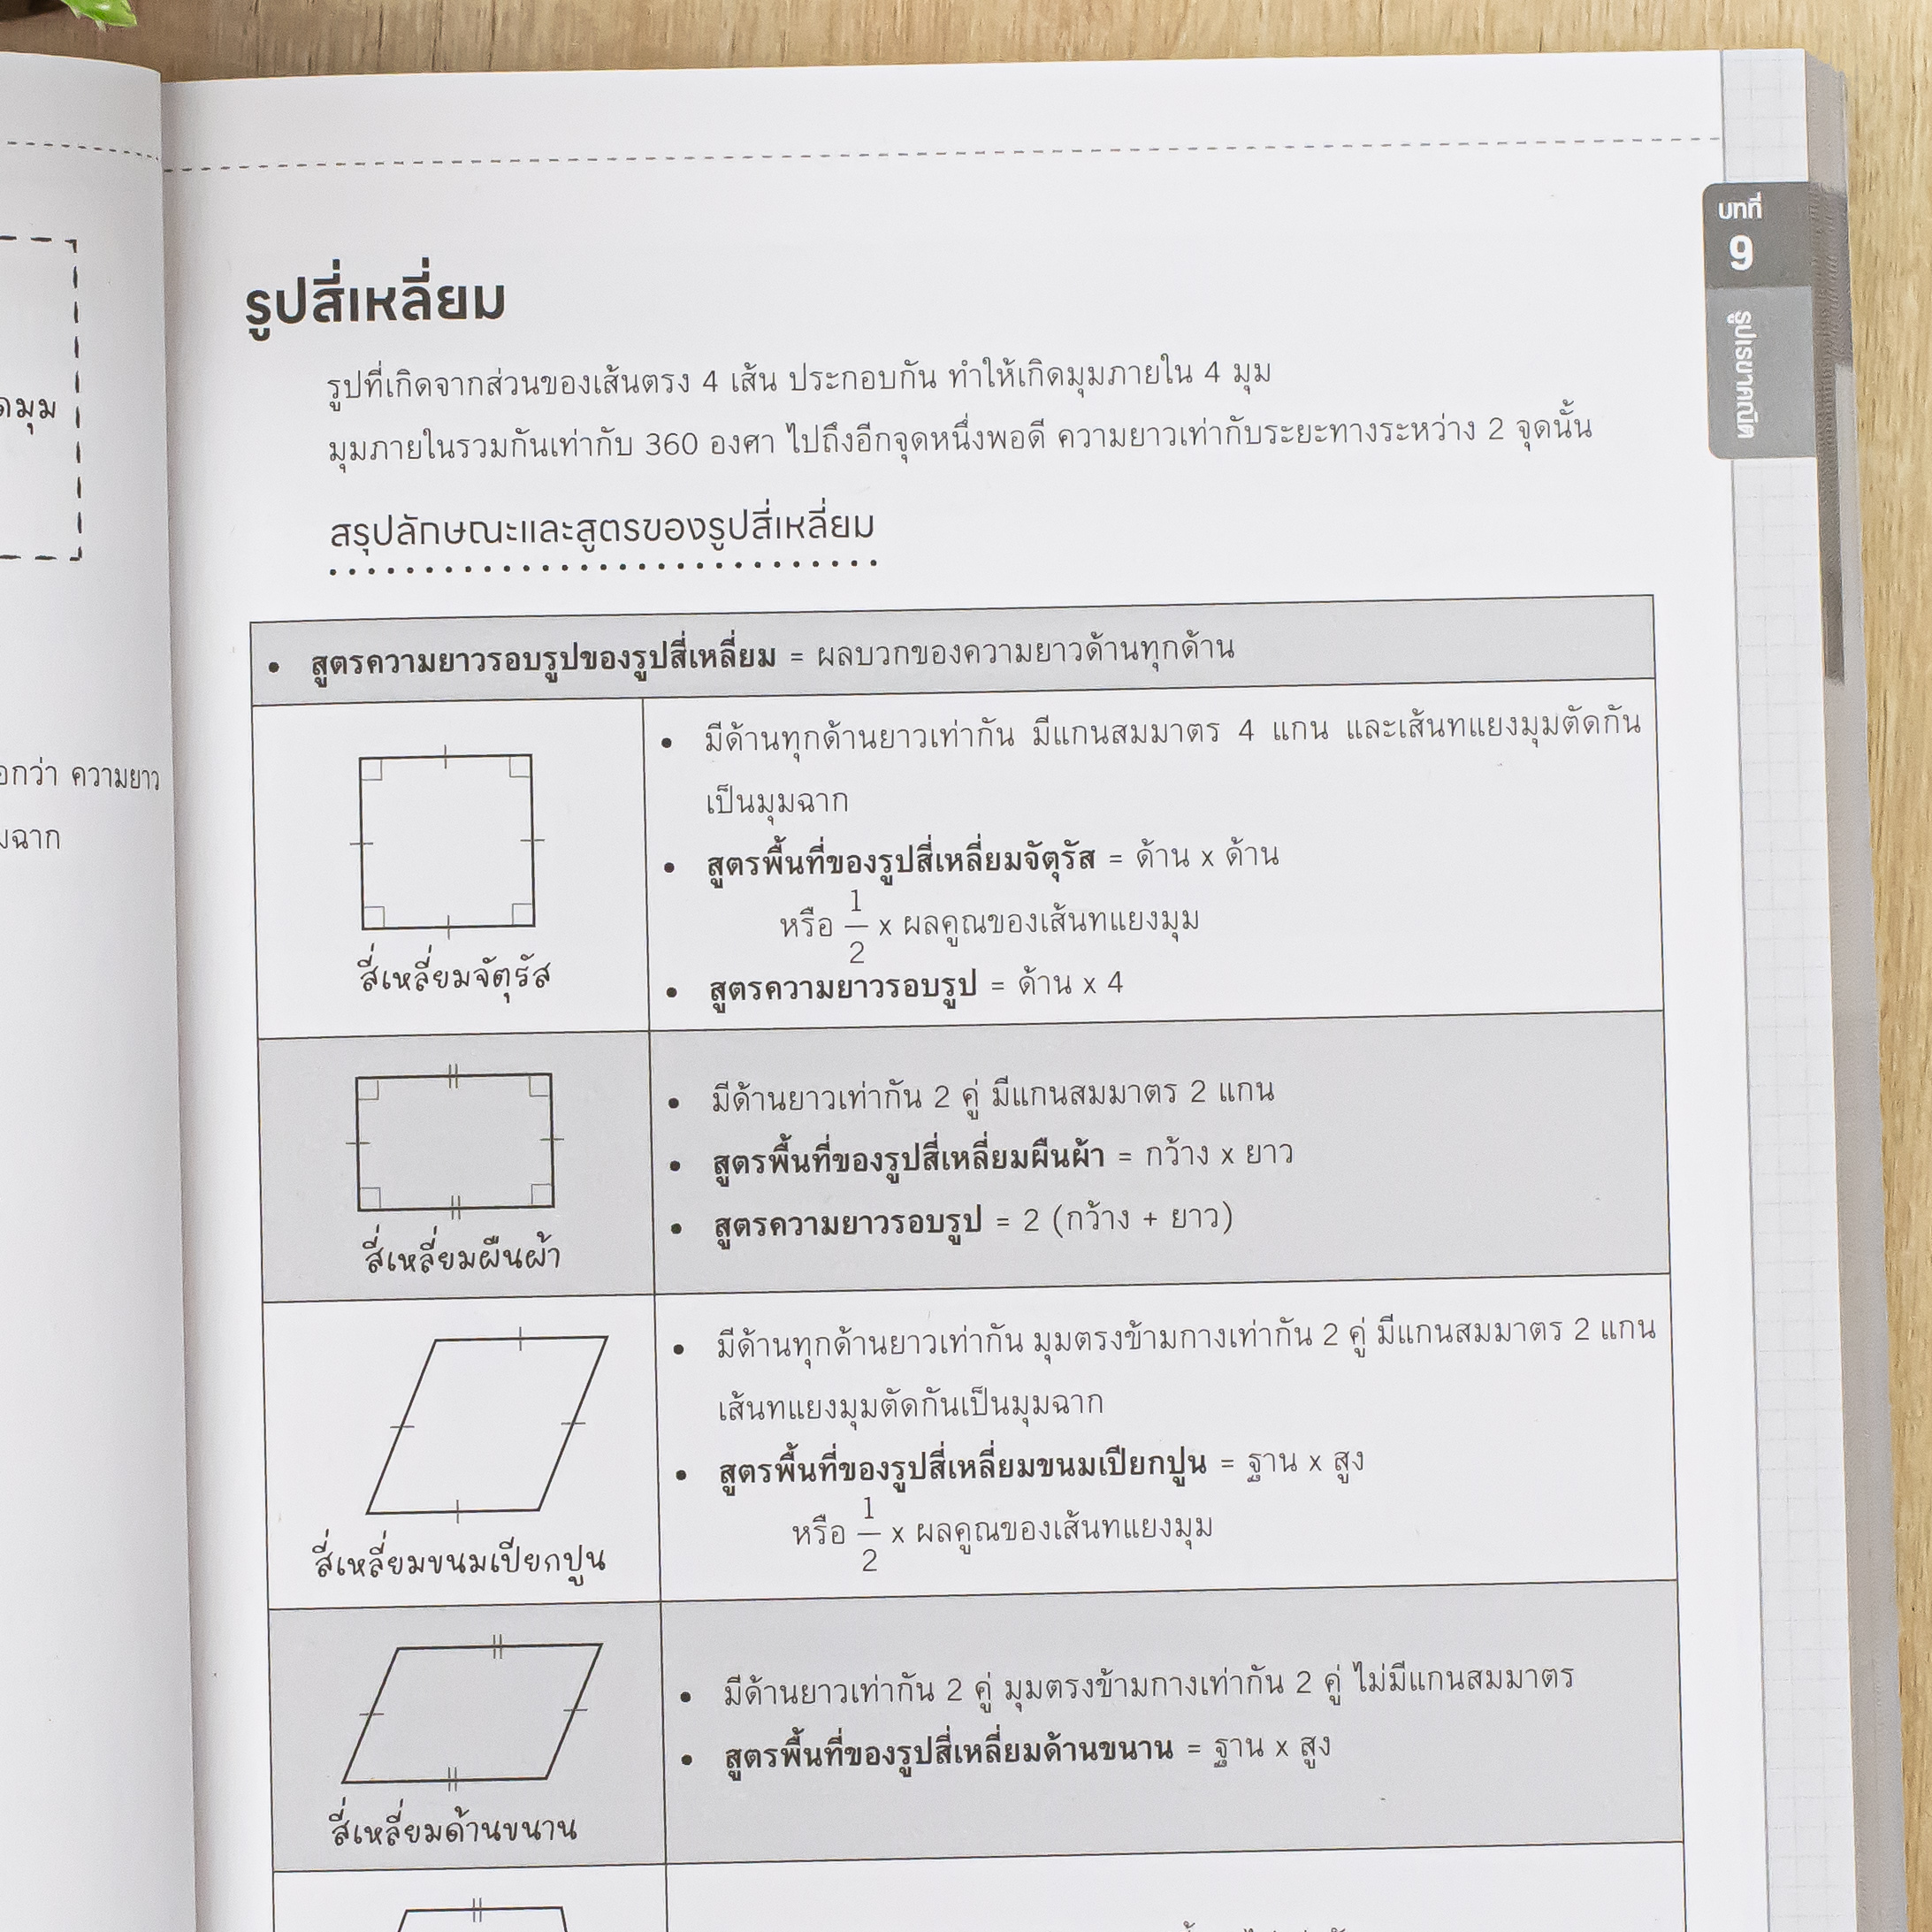 มุม
ความยาว
บทที่
9
รูปเรขาคณิต
รูปสี่เหลี่ยม
รูปที่เกิดจากส่วนของเส้นตรง 4 เส้น ประกอบกัน ทำให้เกิดมุมภายใน 4 มุม
มุมภายในรวมกันเท่ากับ 360 องศา ไปถึงอีกจุดหนึ่งพอดี ความยาวเท่ากับระยะทางระหว่าง 2 จุดนั้น
สรุปลักษณะและสูตรของรูปสี่เหลี่ยม
• สูตรความยาวรอบรูปของรูปสี่เหลี่ยม = ผลบวกของความยาวด้านทุกด้าน
สี่เหลี่ยมจัตุรัส
• มีด้านทุกด้านยาวเท่ากัน มีแกนสมมาตร 4 แกน และเส้นทแยงมุมตัดกัน
เป็นมุมฉาก
• สูตรพื้นที่ของรูปสี่เหลี่ยมจัตุรัส = ด้าน x ด้าน
หรือ 1/2 x ผลคูณของเส้นทแยงมุม
• สูตรความยาวรอบรูป = ด้าน x 4
สี่เหลี่ยมผืนผ้า
• มีด้านยาวเท่ากัน 2 คู่ มีแกนสมมาตร 2 แกน
• สูตรพื้นที่ของรูปสี่เหลี่ยมผืนผ้า = กว้าง x ยาว
• สูตรความยาวรอบรูป = 2 (กว้าง + ยาว)
สี่เหลี่ยมขนมเปียกปูน
• มีด้านทุกด้านยาวเท่ากัน มุมตรงข้ามกางเท่ากัน 2 คู่ มีแกนสมมาตร 2 แกน
เส้นทแยงมุมตัดกันเป็นมุมฉาก
• สูตรพื้นที่ของรูปสี่เหลี่ยมขนมเปียกปูน = ฐาน x สูง
หรือ 1/2 x ผลคูณของเส้นทแยงมุม
สี่เหลี่ยมด้านขนาน
• มีด้านยาวเท่ากัน 2 คู่ มุมตรงข้ามกางเท่ากัน 2 คู่ ไม่มีแกนสมมาตร
• สูตรพื้นที่ของรูปสี่เหลี่ยมด้านขนาน = ฐาน x สูง